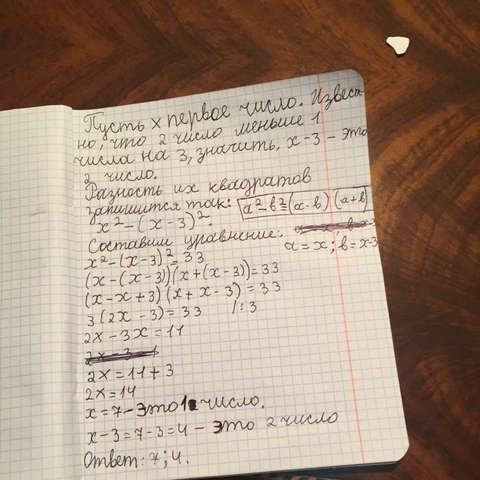 Пусть x первое число. Извест-
но, что 2 число меньше 1
числа на 3, значить, x-3 - это
2 число.
Разность их квадратов
запишится так: a²-b²=(a-b)(a+b)
x²-(x-3)².
Составим уравнение: a=x; b=x-3
x²-(x-3)²=33
(x-(x-3))(x+(x-3))=33
(x-x+3)(x+x-3)=33
3(2x-3)=33 /:3
2x-3x=11
2x=11+3
2x=14
x=7-это 1 число.
x-3=7-3=4 - это 2 число
Ответ: 7; 4.